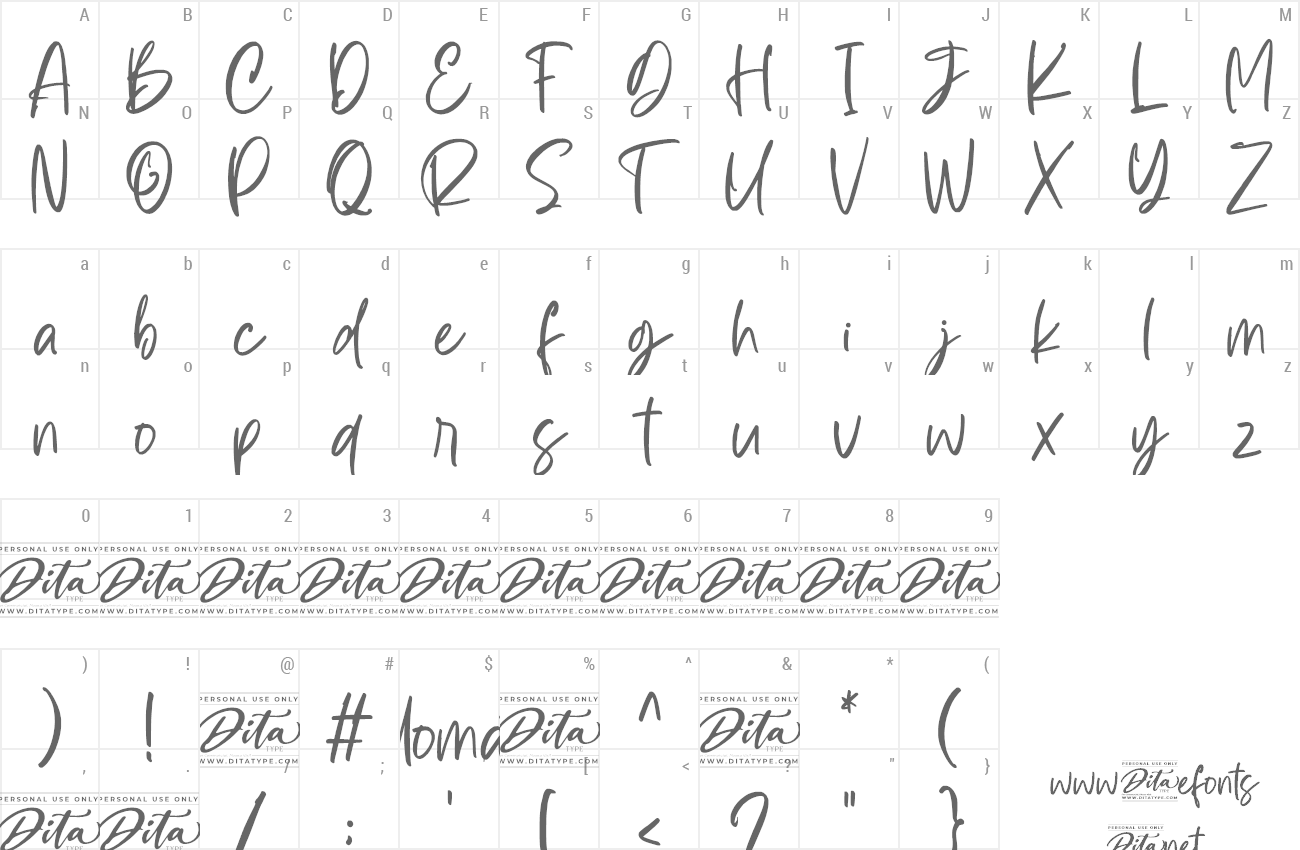 A B C D E F G H I J K L M
A B C D E F G H I J K L M
N O P Q R S T U V W X Y Z
N O P Q R S T U V W X Y Z
a b c d e f g h i j k l m
a b c d e f g h i j k l m
n o p q r s t u v w x y z
n o p q r s t u v w x y z
0 1 2 3 4 5 6 7 8 9
PERSONAL USE ONLY PERSONAL USE ONLY PERSONAL USE ONLY PERSONAL USE ONLY PERSONAL USE ONLY PERSONAL USE ONLY PERSONAL USE ONLY PERSONAL USE ONLY PERSONAL USE ONLY PERSONAL USE ONLY
Dita Dita Dita Dita Dita Dita Dita Dita Dita Dita
TYPE TYPE TYPE TYPE TYPE TYPE TYPE TYPE TYPE TYPE
WWW.DITATYPE.COM WWW.DITATYPE.COM WWW.DITATYPE.COM WWW.DITATYPE.COM WWW.DITATYPE.COM WWW.DITATYPE.COM WWW.DITATYPE.COM WWW.DITATYPE.COM WWW.DITATYPE.COM WWW.DITATYPE.COM
) ! @ # $ % ^ & * (
PERSONAL USE ONLY PERSONAL USE ONLY PERSONAL USE ONLY
) ! Dita # Dita ^ Dita * (
TYPE TYPE TYPE
WWW.DITATYPE.COM WWW.DITATYPE.COM WWW.DITATYPE.COM
, . / ; [ < ? " }
PERSONAL USE ONLY PERSONAL USE ONLY
Dita Dita / ; ' [ < ? " }
PERSONAL USE ONLY
www Dita efonts
TYPE
WWW.DITATYPE.COM
PERSONAL USE ONLY
Dita net